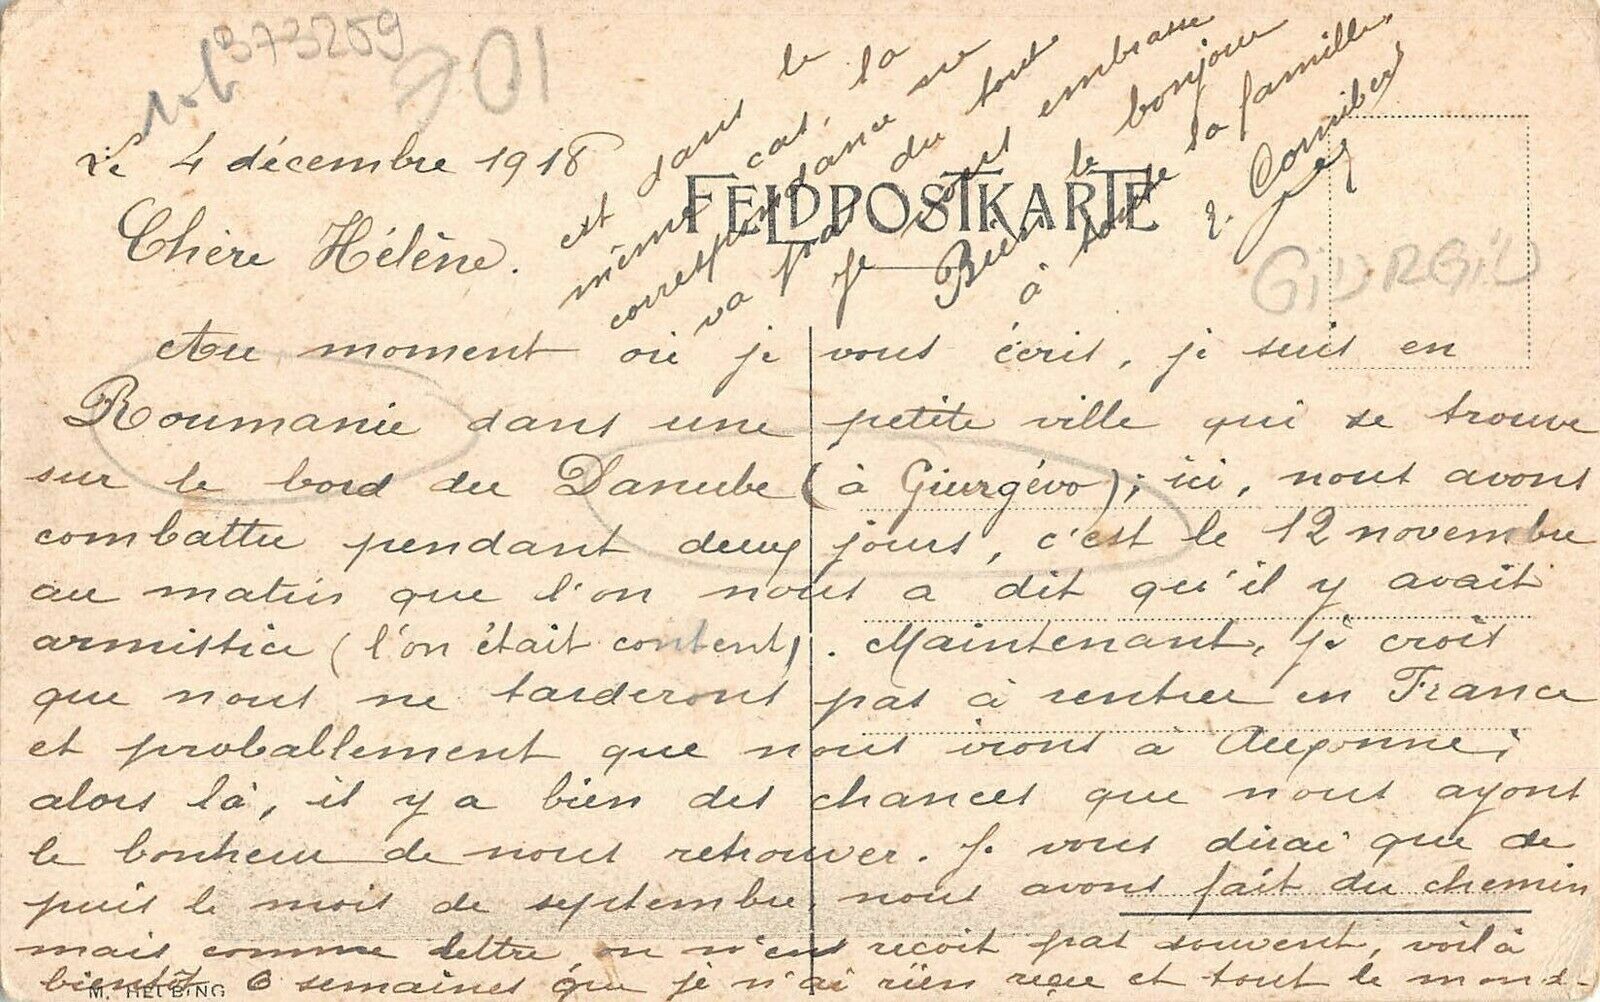 373259
201
Le 4 décembre 1918
FELDPOSTKARTE
GIURGIU
Chère Hélène.
Au moment où je vous écris, je suis en
Roumanie dans une petite ville qui se trouve
sur le bord du Danube (à Giurgévo); ici, nous avons
combattu pendant deux jours, c'est le 12 novembre
au matin que l'on nous a dit qu'il y avait
armistice (l'on était content). Maintenant, je crois
que nous ne tarderons pas à rentrer en France
et probablement que nous irons à Auxonne;
alors là, il y a bien des chances que nous ayons
le bonheur de nous retrouver. Je vous dirai que de
puis le mois de septembre, nous avons fait du chemin
mais comme lettre, on n'en reçoit pas souvent, voilà
bientôt 6 semaines que je n'ai rien reçu et tout le mond-
M. HELBING
est dans le
même cas, la
correspondance ne
va pas du tout
Je vous embrasse
Bien le bonjour
à toute la famille,